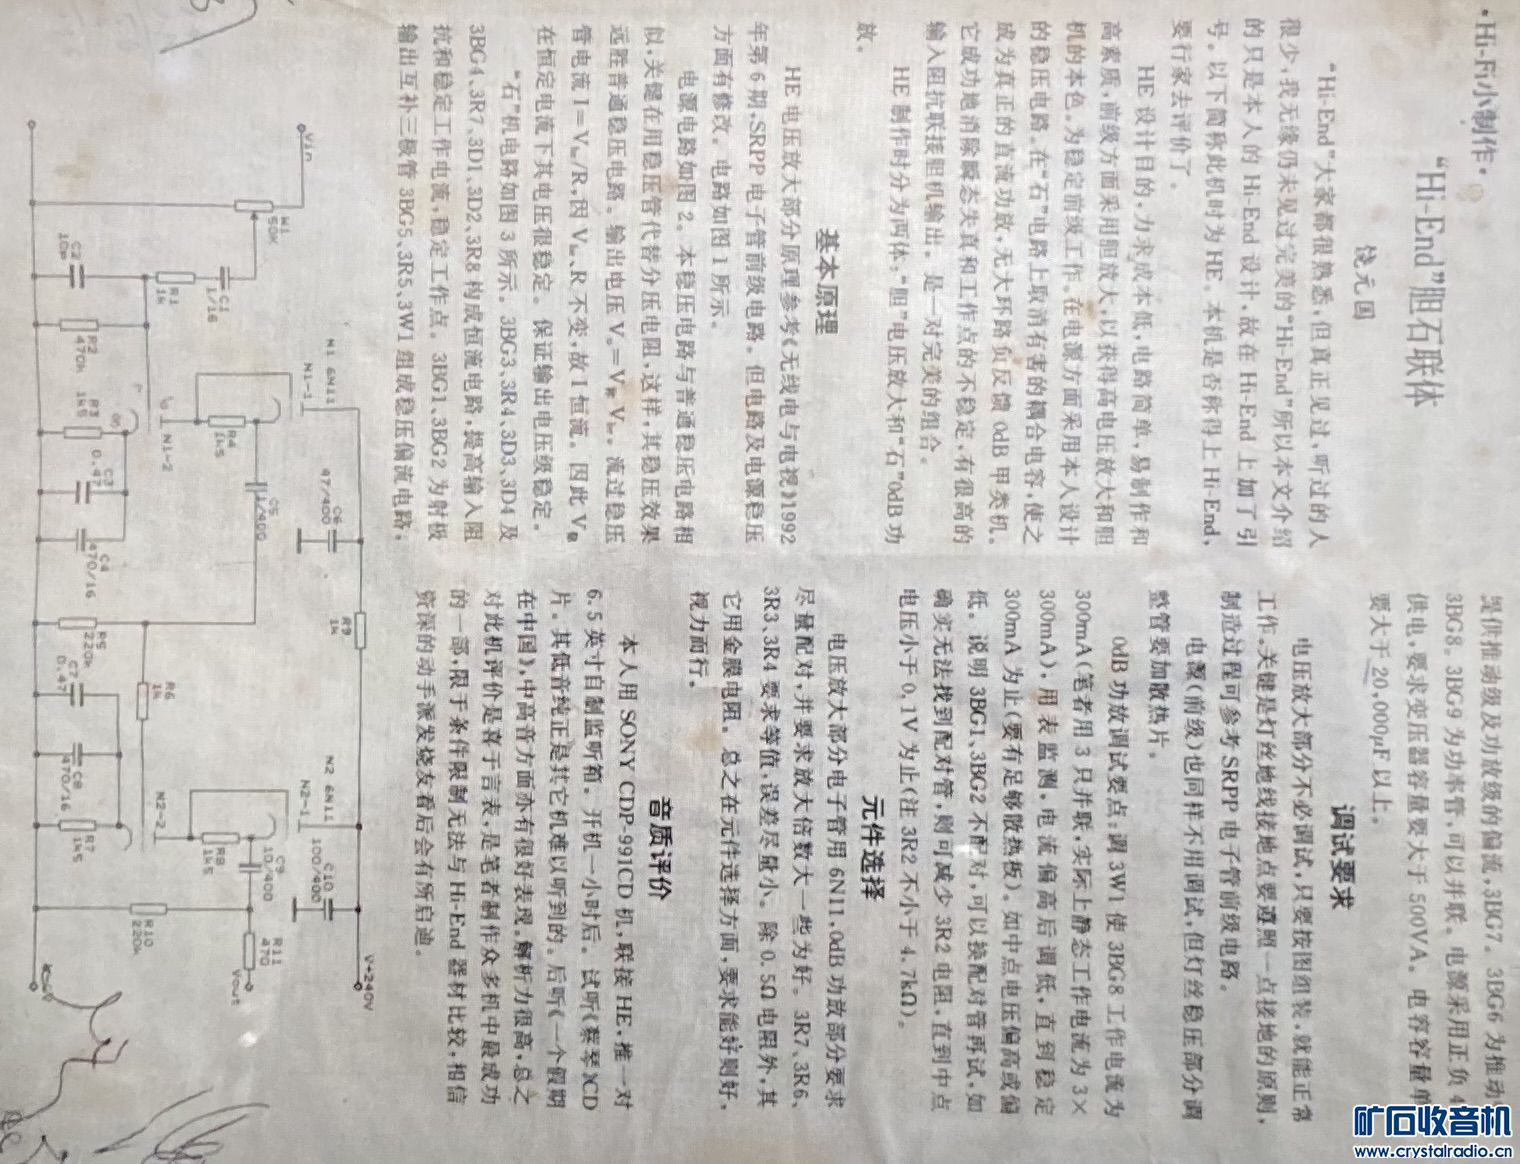 ·Hi-Fi小制作·
“Hi-End”胆石联体
饶元国
“Hi-End”大家都很熟悉,但真正见过,听过的人
很少,我无缘仍未见过完美的“Hi-End”所以本文介绍
的只是本人的 Hi-End 设计,故在 Hi-End 上加了引
号。以下简称此机时为 HE。本机是否称得上 Hi-End,
要行家去评价了。
HE 设计目的,力求成本低,电路简单,易制作和
高素质,前级方面采用胆放大,以获得高电压放大和胆
机的本色。为稳定前级工作。在电源方面采用本人设计
的稳压电路。在“石”电路上取消有害的耦合电容,使之
成为真正的直流功放,无大环路负反馈 0dB 甲类机。
它成功地消除瞬态失真和工作点的不稳定,有很高的
输入阻抗联接胆机输出。是一对完美的组合。
HE 制作时分为两体,“胆”电压放大和“石”0dB 功
放。
基本原理
HE 电压放大部分原理参考《无线电与电视》1992
年第 6 期、SRPP 电子管前级电路。但电路及电源稳压
方面有修改。电路如图 1 所示。
电源电路如图 2。本稳压电路与普通稳压电路相
似,关键在用稳压管代替分压电阻,这样,其稳压效果
远胜普通稳压电路。输出电压
流过稳压
管电流
R 不变,故 I 恒流。因此
在恒定电流下其电压很稳定。保证输出电压级稳定。
“石”机电路如图 3 所示。3BG3、3R4、3D3、3D4 及
3BG4、3R7、3D1、3D2、3R8 构成恒流电路,提高输入阻
抗和稳定工作电流,稳定工作点。3BG1、3BG2 为射极
输出互补三极管 3BG5、3R5、3W1 组成稳压偏流电路,
提供推动级及功放级的偏流,3BG7。3BG6 为推动
3BG8。3BG9 为功率管,可以并联。电源采用正负 4
供电,要求变压器容量要大于 500VA。电容容量单
要大于 20,000μF 以上。
调试要求
电压放大部分不必调试,只要按图组装,就能正常
工作。关键是灯丝地线接地点要遵照一点接地的原则,
制造过程可参考 SRPP 电子管前级电路。
电源(前级)也同样不用调试,但灯丝稳压部分调
整管要加散热片。
0dB 功放调试要点:调 3W1 使 3BG8 工作电流为
300mA(笔者用 3 只并联,实际上静态工作电流为 3×
300mA),用表监测,电流偏高后调低,直到稳定
300mA 为止(要有足够散热板)。如中点电压偏高或偏
低。说明 3BG1、3BG2 不配对,可以换配对管再试,如
确实无法找到配对管,则可减少 3R2 电阻,直到中点
电压小于 0.1V 为止(注 3R2 不小于 4.7kΩ)。
元件选择
电压放大部分电子管用 6N11,0dB 功放部分要求
尽量配对,并要求放大倍数大一些为好。3R7、3R6、
3R3、3R4 要求等值,误差尽量小。除 0.5Ω 电阻外,其
它用金膜电阻。总之在元件选择方面,要求能好则好,
视力而行。
音质评价
本人用 SONY CDP-991CD 机,联接 HE,推一对
6.5 英寸自制监听箱。开机一小时后。试听《蔡琴》CD
片。其低音纯正是其它机难以听到的。后听《一个假期
在中国》,中高音方面亦有很好表现。解析力很高,总之
对此机评价是喜于言表,是笔者制作众多机中最成功
的一部,限于条件限制无法与 Hi-End 器材比较,相信
资深的动手派发烧友看后会有所启迪。
Vin
W1
50K
C1
1/16
R1
1k
C2
10P
R2
470k
R3
1k5
C3
0.47
C4
470/16
N1-2
R4
1k5
N1-1
N1 6N11
C5
1/400
C6
47/400
R9
1k
R5
220k
R6
1k
C7
0.47
C8
470/16
R7
1k5
N2-2
R8
1k5
N2-1
N2 6N11
C9
10/400
C10
100/400
R10
220k
R11
470
Vout
V+240V
矿石收音机
www.crystalradio.cn